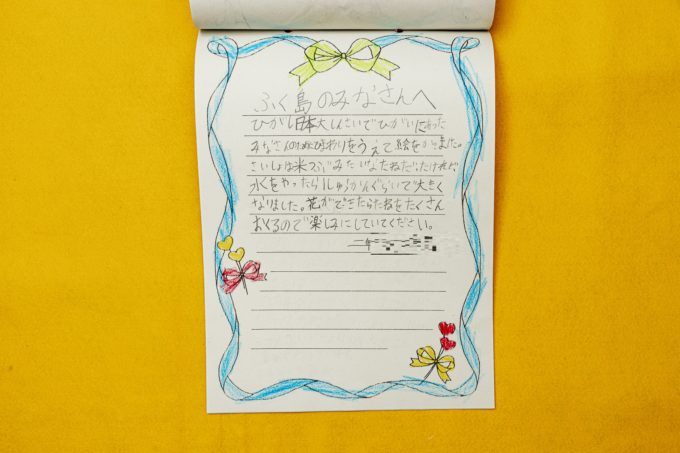 ふく島のみなさんへ
ひがし日本大しんさいでひがいにあった
みなさんのためにひまわりをうえて絵をかきました。
さいしょは米つぶみたいなたねだったけれど、
水をやったら1しゅうかんぐらいで大きく
なりました。花ができたらたねをたくさん
おくるので楽しみにしていてください。
二年